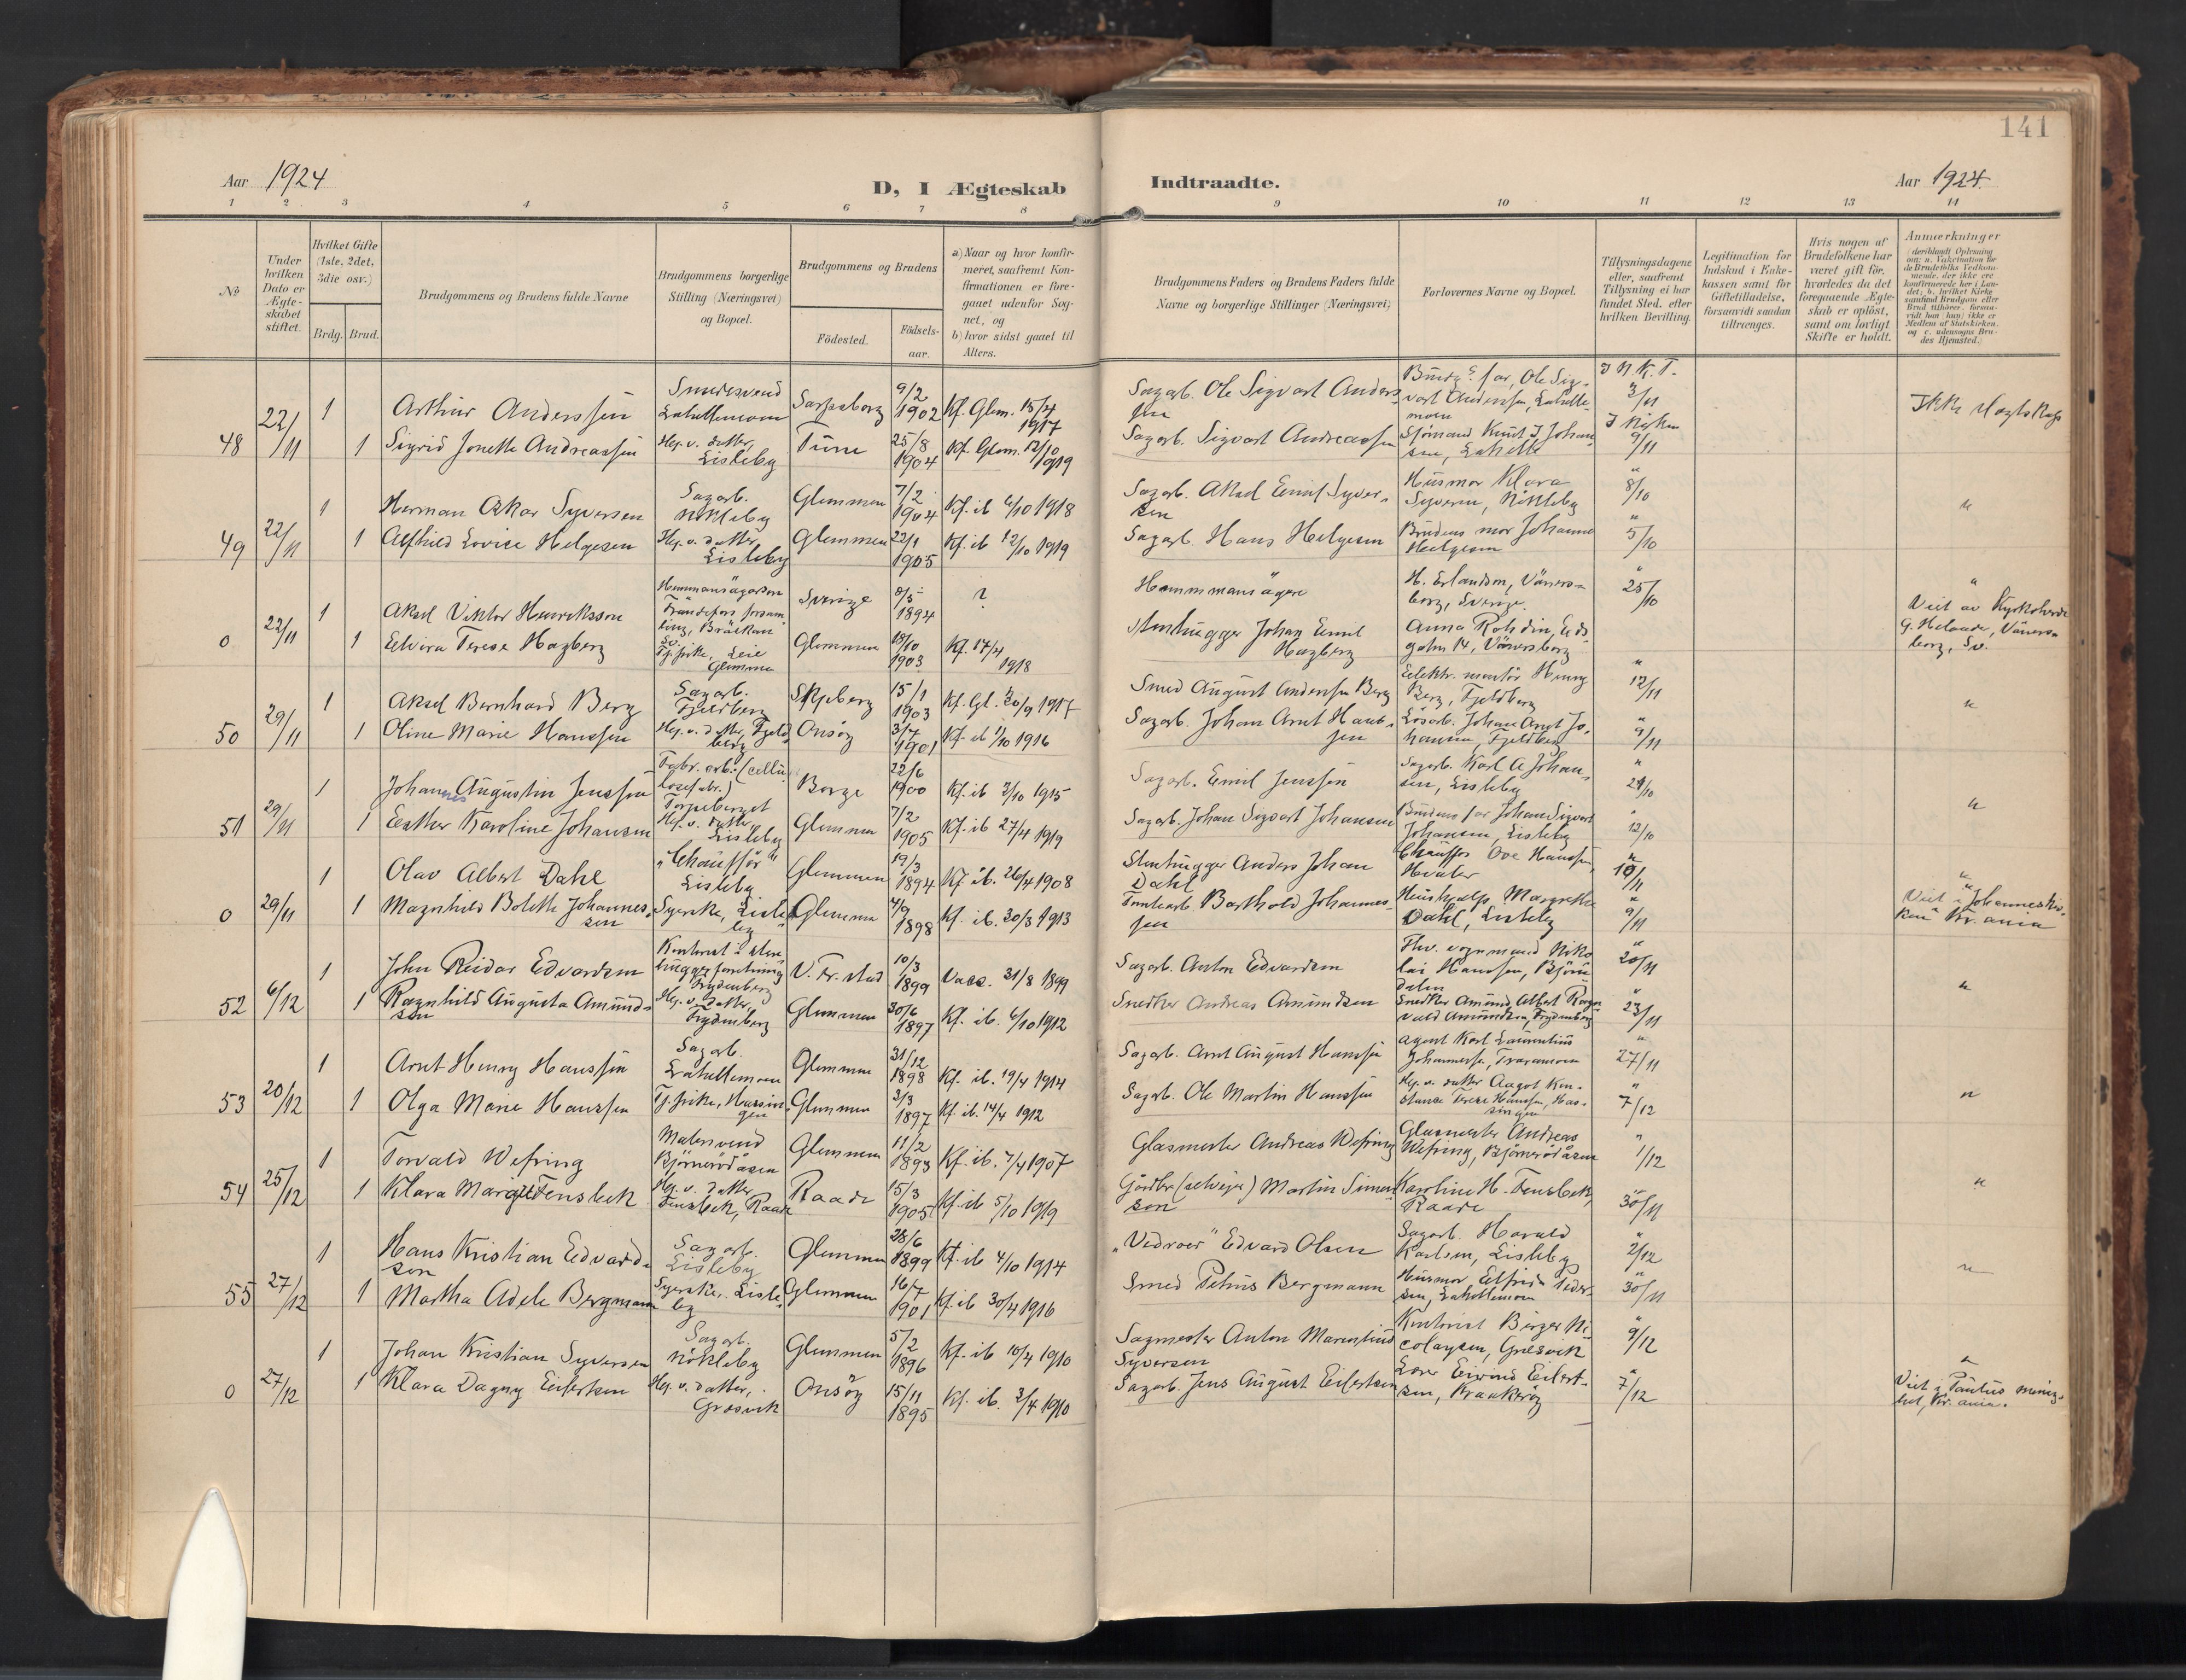 141
Aar 1924
D, I Ægteskab
Indtraadte.
Aar 1924.
1 2 3 4 5 6 7 8
9 10 11 12 13 14
No
Under hvilken Dato er Ægteskabet stiftet.
Hvilket Gifte (1ste, 2det, 3die osv.)
Brdg. Brud.
Brudgommens og Brudens fulde Navne
Brudgommens borgerlige Stilling (Næringsvei) og Bopæl.
Brudgommens og Brudens
Födested.
Födselsaar.
a) Naar og hvor konfirmeret, saafremt Konfirmationen er foregaaet udenfor Sognet, og
b) hvor sidst gaaet til Alters.
Brudgommens Faders og Brudens Faders fulde Navne og borgerlige Stillinger (Næringsvei)
Forlovernes Navne og Bopæl.
Tillysningsdagene eller, saafremt Tillysning ei har fundet Sted, efter hvilken Bevilling.
Legitimation for Indskud i Enkekassen samt for Giftetilladelse, forsaavidt saadan tiltrænges.
Hvis nogen af Brudefolkene har været gift før, hvorledes da det foregaaende Ægteskab er oplöst, samt om lovligt Skifte er holdt.
Anmærkninger
48 22/11
1 Arthur Anderssen Smedesvend Lahellemoen Sarpsborg 9/2 1902 Kf. Glem. 15/4 1917
Sagarb. Ole Sigvart Anderssen Brudg.s far, Ole Sigvart Anderssen, Lahellemoen I N K. T. 3/11
1 Sigrid Jonette Andreassen Hj. v. datter, Lisleby Tune 25/8 1904 Kf. Glem. 12/10 1919
Sagarb. Sigvart Andreassen Sjømand Knut J. Johansen, Lahelle 9/11
49 22/11
1 Herman Oskar Syversen Sagarb. Nökleby Glemmen 7/2 1904 Kf. ib 6/10 1918
Sagarb. Aksel Emil Syversen Husmor Klara Syversen, Nökleby 8/10
1 Alfhild Lovise Helgesen Hj. v. datter, Lisleby Glemmen 22/1 1905 Kf. ib 12/10 1919
Sagarb. Hans Helgesen Brudens mor Johanne Helgesen 5/10
0 22/11
1 Aksel Viktor Henriksson Hemmansägareson Sverige 8/5 1894 ?
Hemmansägare H. Erlandson, Vänersborg, Sverige. 25/10
1 Elvira Terese Hagberg Tj. pike, Leie Glemmen Glemmen 18/10 1903 Kf. 17/4 1918
Stenhugger Johan Emil Hagberg Vänersborg
50 29/11
1 Aksel Bernhard Berg Sagarb. Fjeldberg Skjeberg 15/1 1903 Kf. Gl. 30/9 1917
Smed August Anderssen Berg Elektr. montör Henry Berg, Fjeldberg 12/11
1 Oline Marie Hanssen Hj. v. datter, Fjeldberg Onsöy 3/7 1901 Kf. ib 1/10 1916
Sagarb. Johan Arnt Hanssen Lösarb. Johan Arnt Johansen, Fjeldberg 9/11
51 29/11
1 Johannes Augustin Jenssen Fabr. arb. (cellulosefabr.) Torpeberget Borge 22/6 1900 Kf. ib 3/10 1915
Sagarb. Emil Jenssen Sagarb. Karl A Johansen, Lisleby
1 Esther Karoline Johansen Hj. v. datter, Lisleby Glemmen 7/2 1905 Kf. ib 27/4 1919
Sagarb. Johan Sigvart Johansen Brudens far Johan Sigvart Johansen, Lisleby 12/10
0 29/11
1 Olav Albert Dahl "Chauffør" Lisleby Glemmen 19/3 1894 Kf. ib. 26/4 1908
Stenhugger Anders Johan Dahl Chauffør Ove Hanssen, Hvaler 10/11
1 Magnhild Bolette Johannessen Syerske, Lisleby Glemmen 4/9 1898 Kf. ib. 30/3 1913
Tomtearb. Barthold Johannessen Hushjælp Margrethe Dahl, Lisleby 9/11
Viet i "Johanneskirken" Kr.ania
52 6/12
1 John Reidar Edvardsen Kontorist i stenhuggerforretning Frydenberg V. Fr.stad 10/3 1899 Vacc. 31/8 1899
Sagarb. Anton Edvardsen Fhv. vognmand Nikolai Hanssen, Björndalen 20/11
1 Ragnhild Augusta Amundsen Hj. v. datter, Frydenberg Glemmen 30/6 1897 Kf. ib. 6/10 1912
Snedker Andreas Amundsen Snedker Amund Albert Ragnvald Amundsen, Frydenberg 23/11
53 20/12
1 Arnt Henry Hanssen Sagarb. Lahellemoen Glemmen 31/12 1898 Kf. ib. 19/4 1914
Sagarb. Arnt August Hanssen Agent Karl Laurentius Johannessen, Traramoen 27/11
1 Olga Marie Hanssen Tj. pike, Hassingen Glemmen 3/3 1897 Kf. ib. 14/4 1912
Sagarb. Ole Martin Hanssen Hj. v. datter Aagot Konstanse Terese Hanssen, Hassingen 7/12
54 25/12
1 Torvald Wefring Malersvend Björneröd åsen Glemmen 11/2 1893 Kf. ib. 7/4 1907
Glasmester Andreas Wefring Glasmester Andreas Wefring, Björnerödåsen 1/12
1 Klara Margit Fensbek Hj. v. datter Fensbek, Raade Raade 15/3 1905 Kf. ib 5/10 1919
Gårdbr. (selveier) Martin Simensson Karoline H. Fensbek, Raade 30/11
55 27/12
1 Hans Kristian Edvardsen Sagarb. Lisleby Glemmen 28/6 1899 Kf. ib 4/10 1914
"Vedroer" Edvard Olsen Sagarb. Harald Karlsen, Lisleby 2/12
1 Martha Adele Bergmann Syerske, Lisleby Glemmen 16/7 1901 Kf. ib 30/4 1916
Smed Petrus Bergmann Husmor Elfrida Pedersen, Lahellemoen 30/11
0 27/12
1 Johan Kristian Syversen Sagarb. Nökleby Glemmen 5/2 1896 Kf. ib 10/4 1910
Sagmester Anton Marentius Syversen Kontorist Birger Nicolaysen, Gresvik 9/12
1 Klara Dagny Eilertsen Hj. v. datter, Gresvik Onsöy 15/11 1895 Kf. ib. 3/4 1910
Sagarb. Jens August Eilertsen Eivind Eilertsen, Kraakeröy 7/12
Viet i Paulus menighet, Kr.ania.